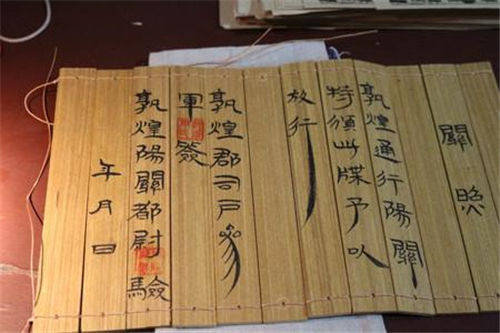 關照
敦煌通行陽關
特須此牒予以
放行
敦煌郡司戶參
軍簽
敦煌陽關都尉驗
年月日